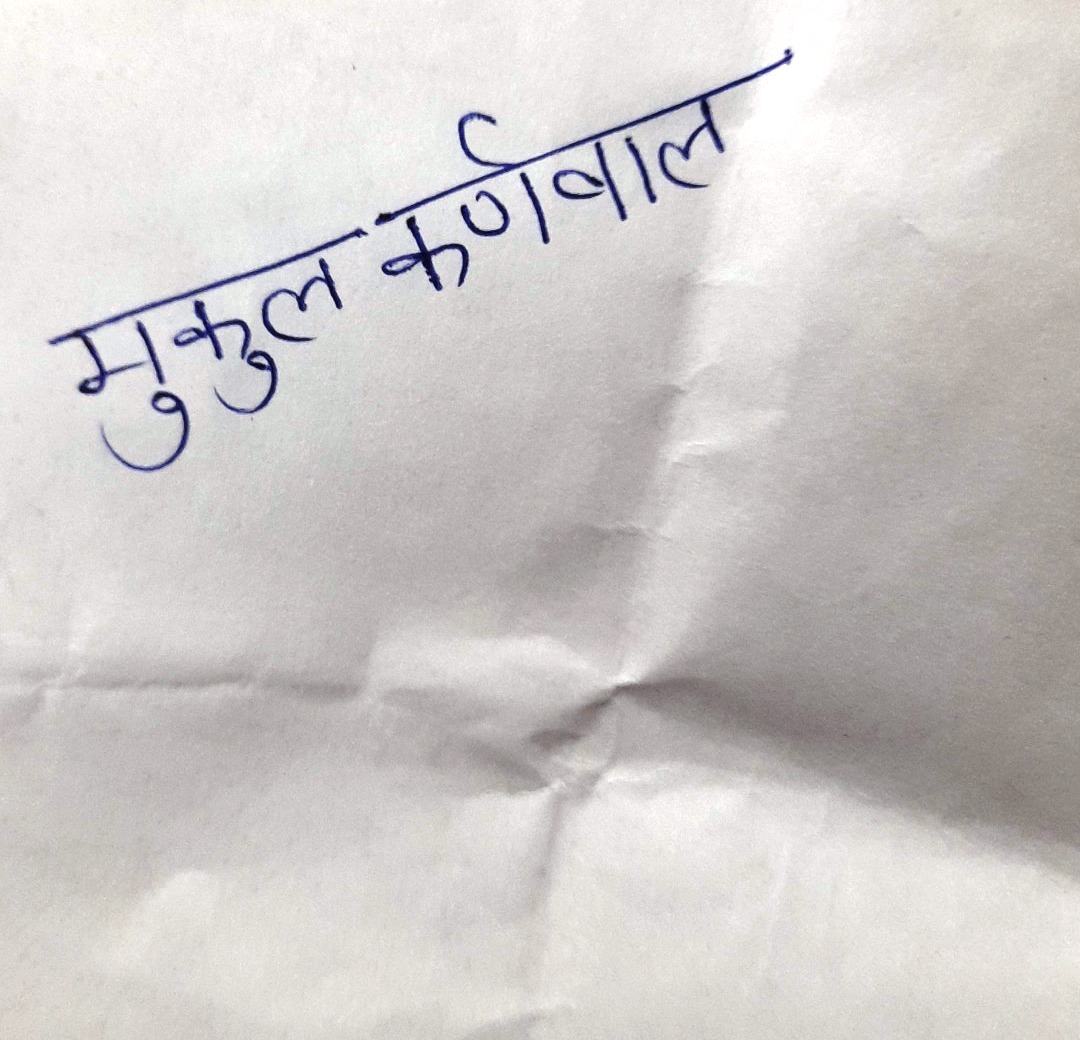 मुकुल कर्णवाल